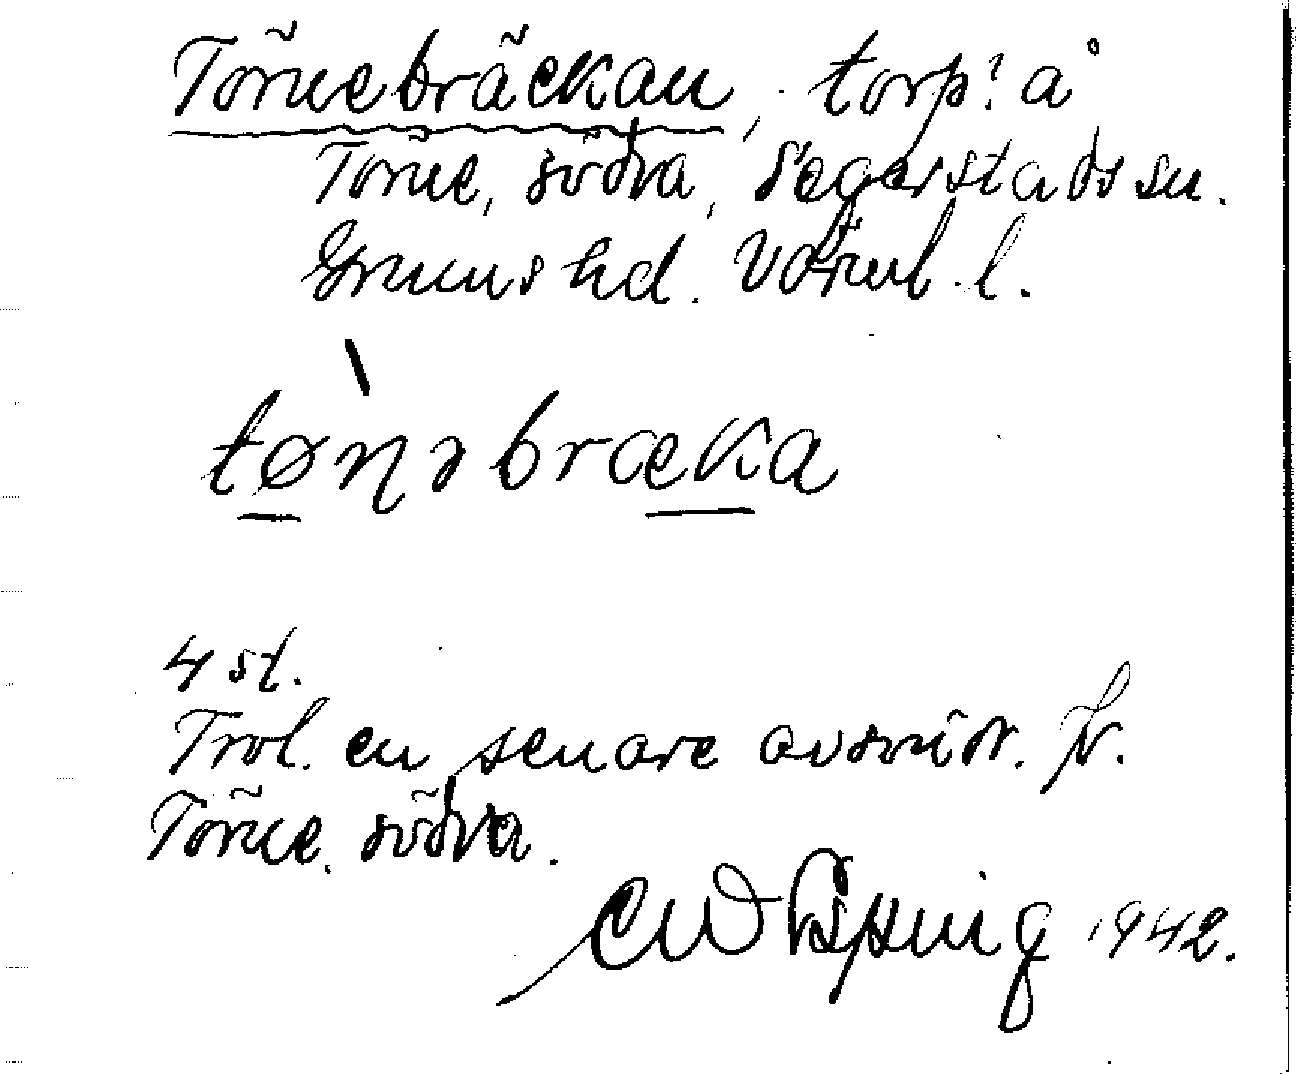 Törnebräckan, torp? å
Törne, södra, Segerstads sn.
Grums hd. Värml. l.
tønəbræka
4 st.
Trol. en senare avsönдr. fr.
Törne, södra.
1942.